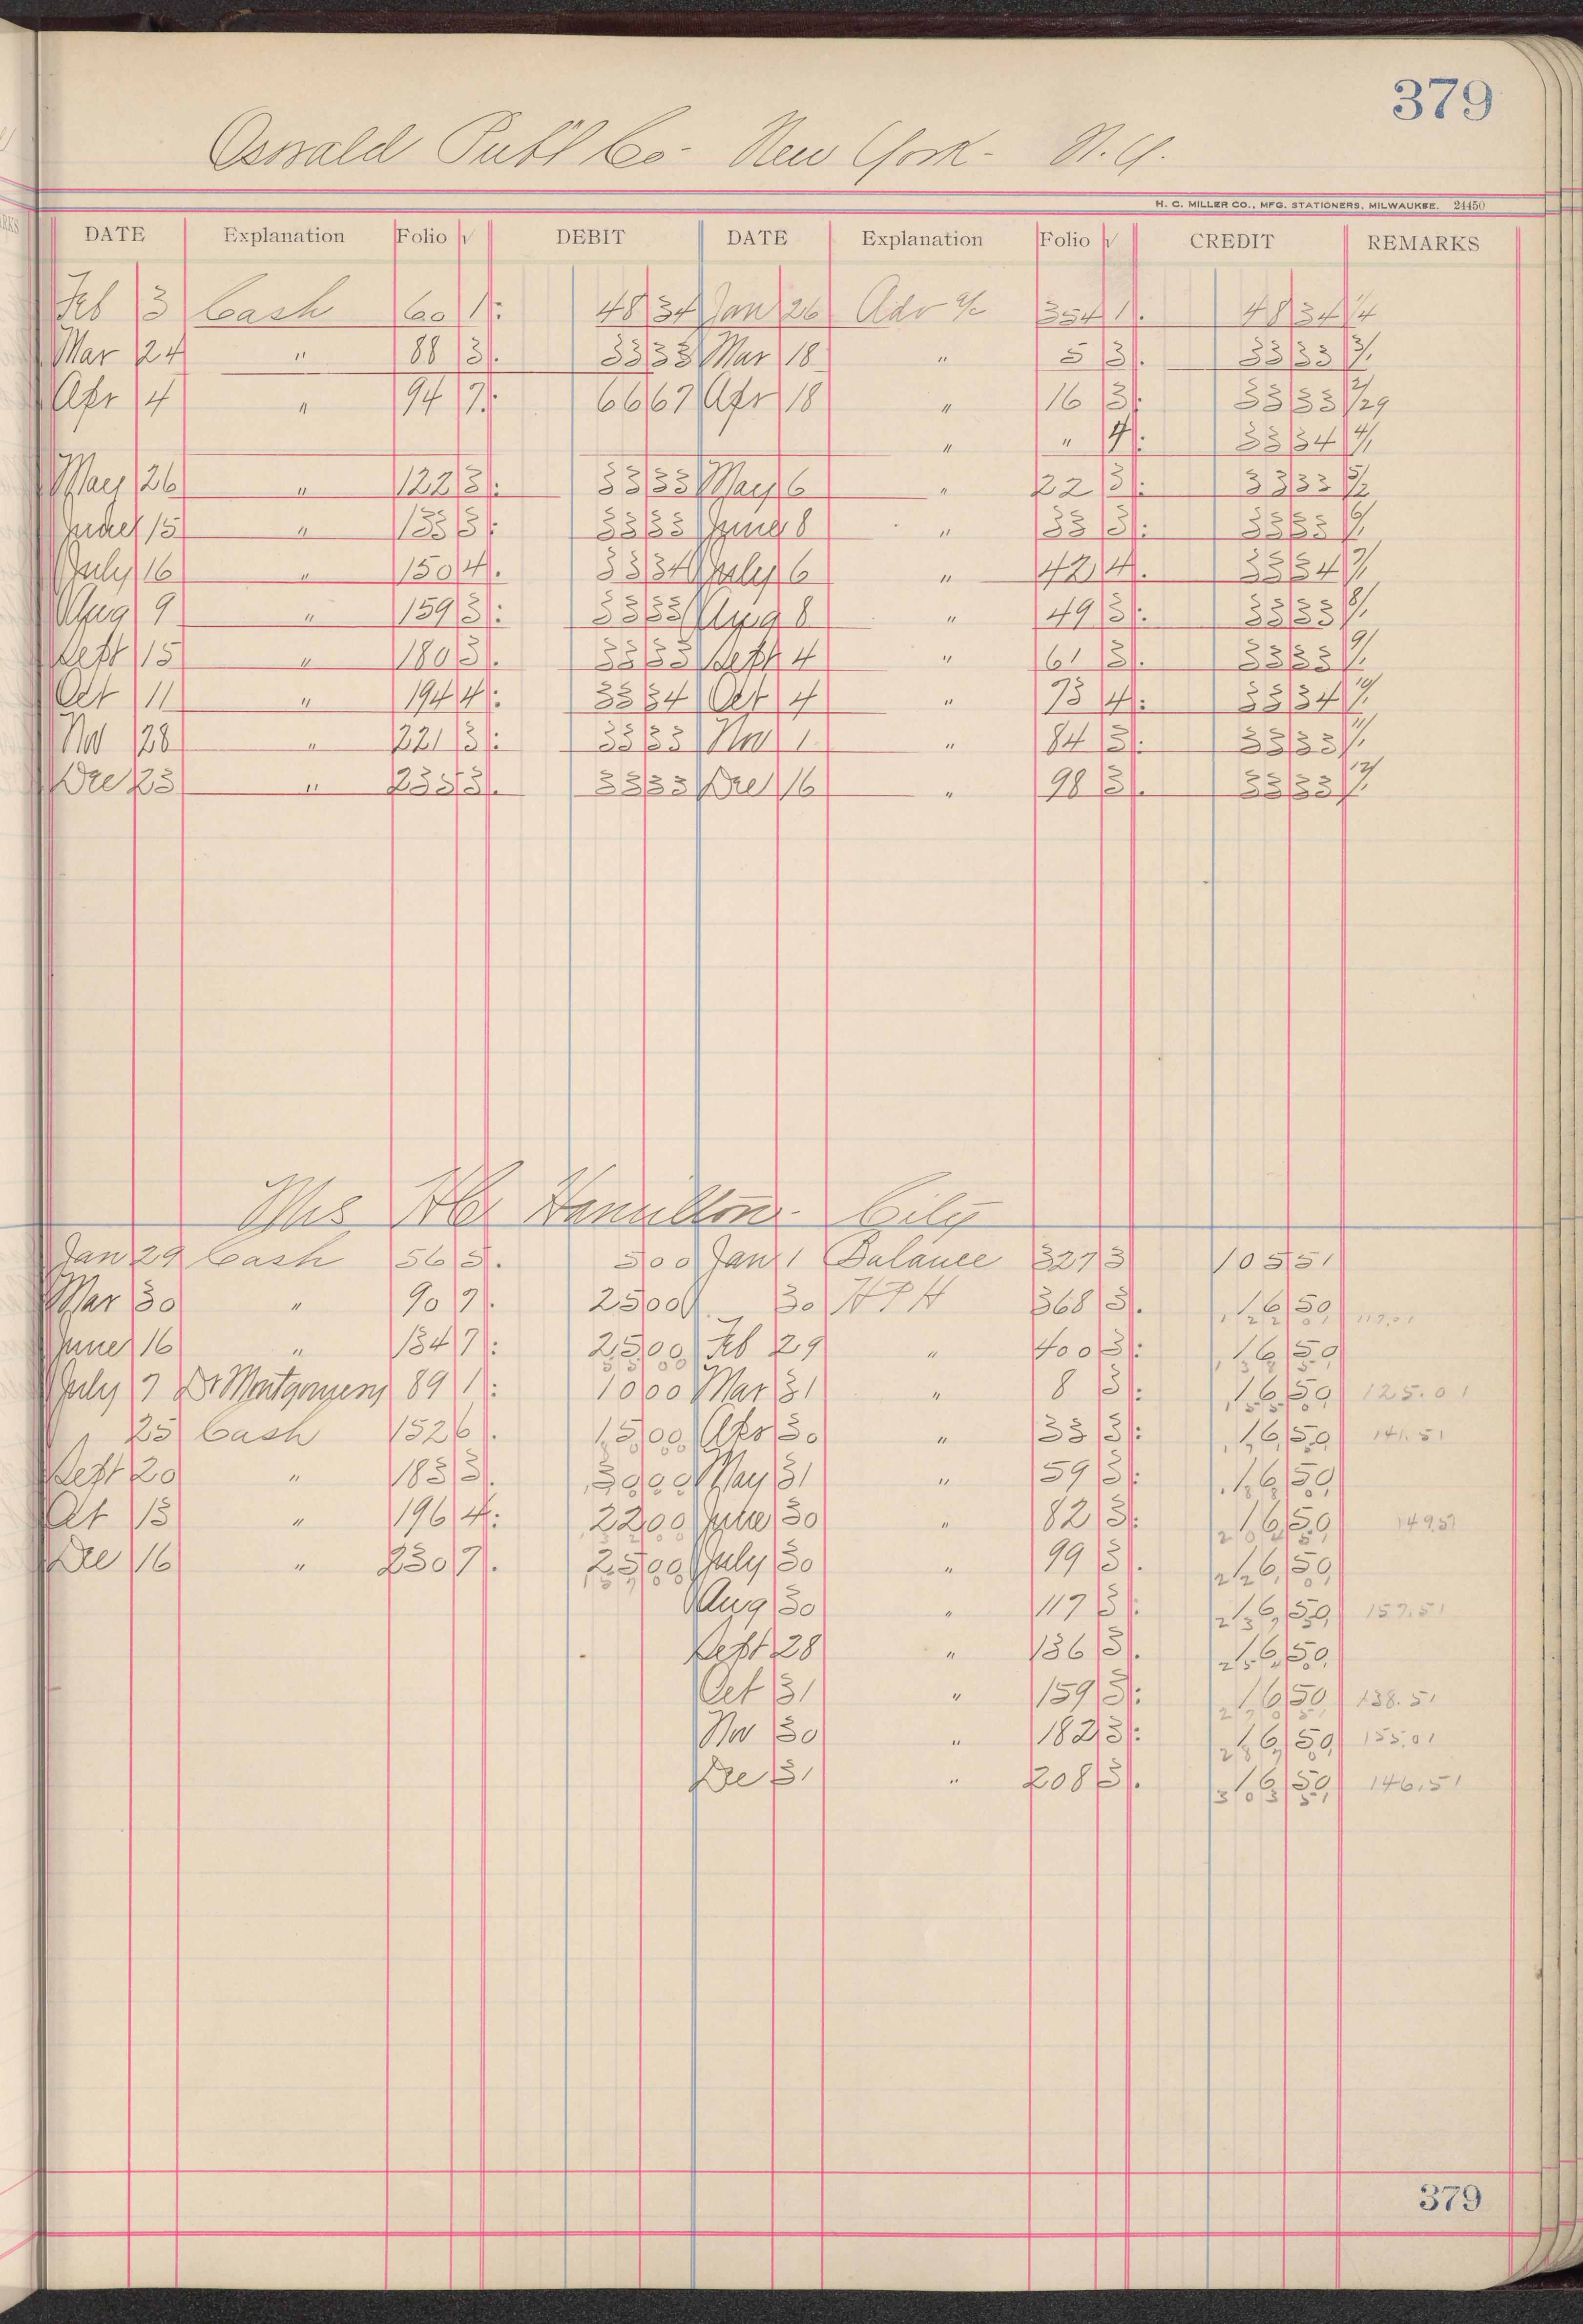 379
Oswald Publ Co - New York - N.Y.
H. C. MILLER CO., MFG. STATIONERS, MILWAUKEE. 24450
DATE Explanation Folio √ DEBIT DATE Explanation Folio √ CREDIT REMARKS
Feb 3 Cash 60 1 48 34 Jan 26 Adv a/c 354 1 48 34 1/4
Mar 24 " 88 3 33 33 Mar 18 " 5 3 33 33 3/1
Apr 4 " 94 7 66 67 Apr 18 " 16 3 33 33 2/29
" " 4 33 34 4/1
May 26 " 122 3 33 33 May 6 " 22 3 33 33 5/2
June 15 " 135 3 33 33 June 8 " 33 3 33 33 6/1
July 16 " 150 4 33 34 July 6 " 42 4 33 34 7/1
Aug 9 " 159 3 33 33 Aug 8 " 49 3 33 33 8/1
Sept 15 " 180 3 33 33 Sept 4 " 61 3 33 33 9/1
Oct 11 " 194 4 33 34 Oct 4 " 73 4 33 34 10/1
Nov 28 " 221 3 33 33 Nov 1 " 84 3 33 33 11/1
Dec 23 " 235 3 33 33 Dec 16 " 98 3 33 33 12/1
Mrs Hamilton - City
Jan 29 Cash 56 5 5 00 Jan 1 Balance 327 3 105 51
Mar 30 " 90 7 25 00 30 HPH 368 3 16 50 117.01
June 16 " 134 7 25 00 Feb 29 " 400 3 16 50
July 7 Dr Montgomery 89 1 10 00 Mar 31 " 8 3 16 50 125.01
25 Cash 152 6 15 00 Apr 30 " 33 3 16 50 141.51
Sept 20 " 183 3 30 00 May 31 " 59 3 16 50
Oct 13 " 196 4 22 00 June 30 " 82 3 16 50 149.51
Dec 16 " 230 7 25 00 July 30 " 99 3 16 50
Aug 30 " 117 3 16 50 157.51
Sept 28 " 136 3 16 50
Oct 31 " 159 3 16 50 138.51
Nov 30 " 182 3 16 50 155.01
Dec 31 " 208 3 16 50 146.51
379